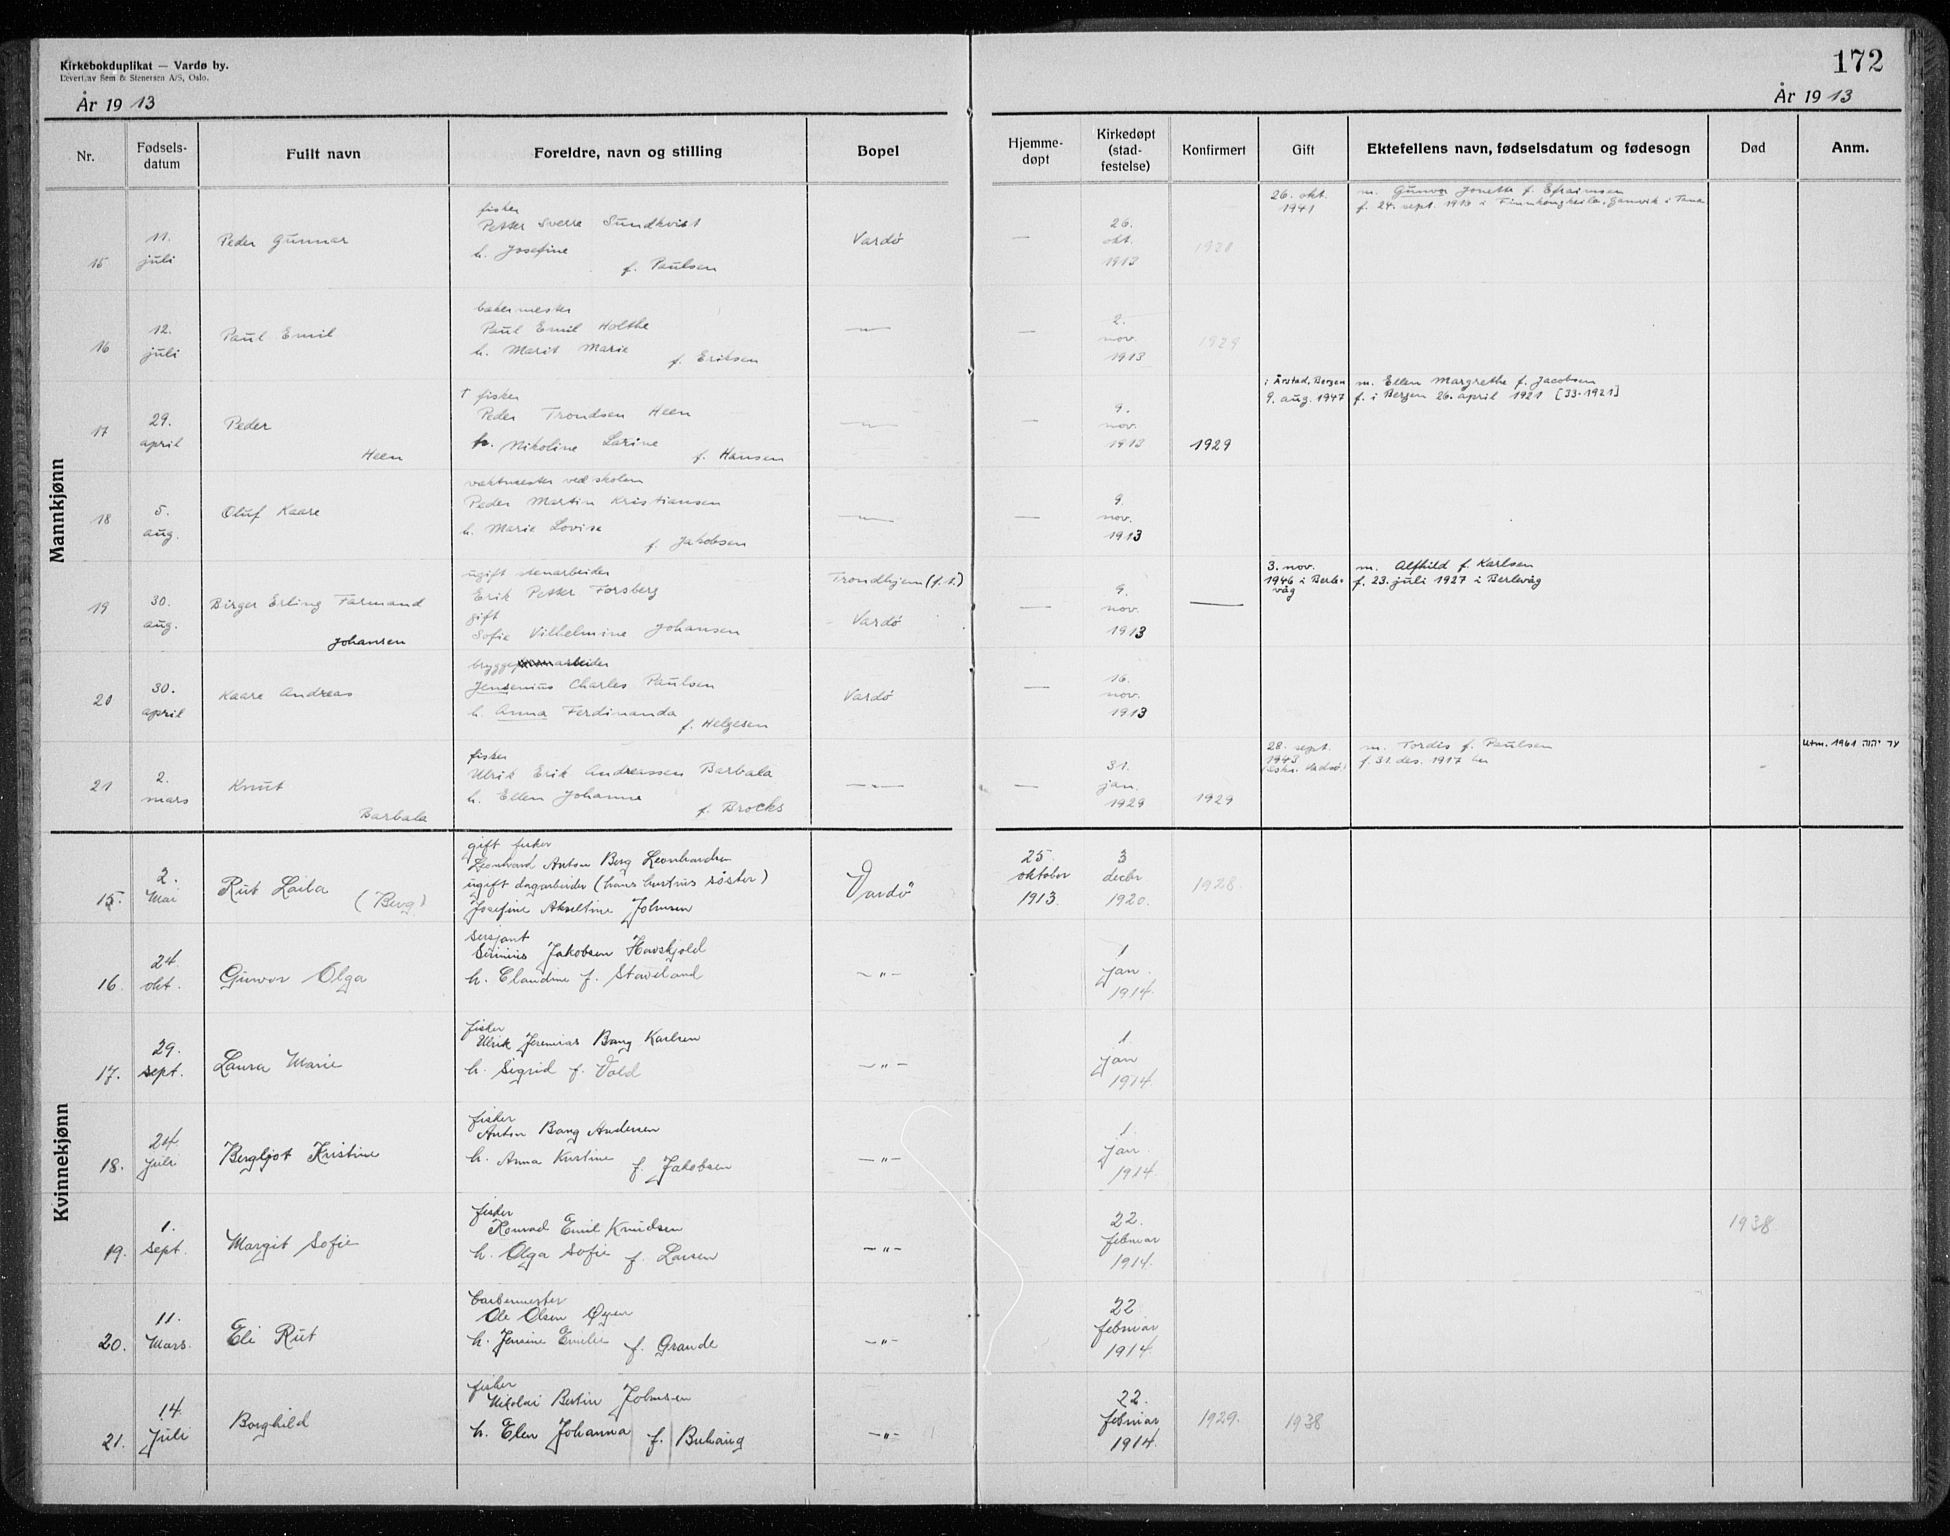 Kirkebokduplikat — Vardø by.
Levert av Sem & Stenersen A/S, Oslo.
År 19 13
172
År 19 13
Nr.
Fødsels-
datum
Fullt navn
Foreldre, navn og stilling
Bopel
Hjemme-
døpt
Kirkedøpt
(stad-
festelse)
Konfirmert
Gift
Ektefellens navn, fødselsdatum og fødesogn
Død
Anm.
Mannkjønn
15
11.
juli
Peder Gunnar
fisker
Petter Sverre Sundkvist
h. Josefine
f. Paulsen
Vardø
—
26.
okt.
1913
26. okt.
1941
m. Gunvor Jonette f. Efraimsen
f. 24. sept. 1916 i Finnkongkeila, Gamvik i Tana
16
12.
juli
Paul Emil
bakermester
Paul Emil Holthe
h. Marit Marie
f. Eriksen
—"—
—
2.
nov.
1913
1929
17
29.
april
Peder
Heen
† fisker
Peder Trondsen Heen
h. Nikoline Larine
f. Hansen
—"—
—
9.
nov.
1913
1929
i Årstad, Bergen
9. aug. 1947
m. Ellen Margrethe f. Jacobsen
f. i Bergen 26. april 1921 [33-1921]
18
5.
aug.
Oluf Kaare
vaktmester ved skolen
Peder Martin Kristiansen
h. Marie Lovise
f. Jakobsen
—"—
—
9.
nov.
1913
19
30.
aug.
Birger Erling Farmand
Johansen
ugift stenarbeider
Erik Petter Forsberg
gift
Sofie Vilhelmine Johansen
Trondhjem (f.t.)
Vardø
—
9.
nov.
1913
—
3. nov.
1946 i Berle-
våg
m. Alfhild f. Karlsen
f. 23. juli 1927 i Berlevåg
20
30.
april
Kaare Andreas
brygge arbeider
Jensenius Charles Paulsen
h. Anna Ferdinanda
f. Helgesen
Vardø
—
16.
nov.
1913
21
2.
mars
Knut
Barbala
fisker
Ulrik Erik Andreassen Barbala
h. Ellen Johanne
f. Brocks
—"—
—
31.
jan.
1929
1929
28. sept.
1943
m. Tordis f. Paulsen
f. 31. des. 1917 her
Utm. 1961
Kvinnekjønn
15.
2.
Mai
Rut Laila
(Berg)
gift fisker
Leonhard Anton Berg Leonhardsen
ugift dagarbeider (hans hustrus søster)
Josefine Akseltine Johnsen
Vardø
25.
oktober
1913.
3
decbr
1920.
1928.
16.
24.
okt.
Gunvor Olga
sersjant
Sirinius Jakobsen Havskjold
h. Claudine f. Staveland
—"—
1
jan.
1914.
17.
29.
sept.
Laura Marie
fisker
Ulrik Jeremias Bang Karlsen
h. Sigrid f. Vold
—"—
1.
jan
1914.
18.
24.
juli
Bergljot Kristine
fisker
Anton Bang Andersen
h. Anna Kirstine
f. Jakobsen
—"—
1.
jan.
1914.
19.
1.
sept.
Margit Sofie
fisker
Konrad Emil Knudsen
h. Olga Sofie f. Larsen
—"—
22.
februar
1914.
1938.
20.
11.
Mars.
Eli Rut
Ole Olsen Øyen
h. Jensine Emilie f. Grande
—"—
22
februar
1914.
21.
14.
Juli
Borghild
fisker
Nikolai Bertin Johnsen
h. Elen Johanna f. Buhaug
—"—
22.
februar
1914.
1929.
1938